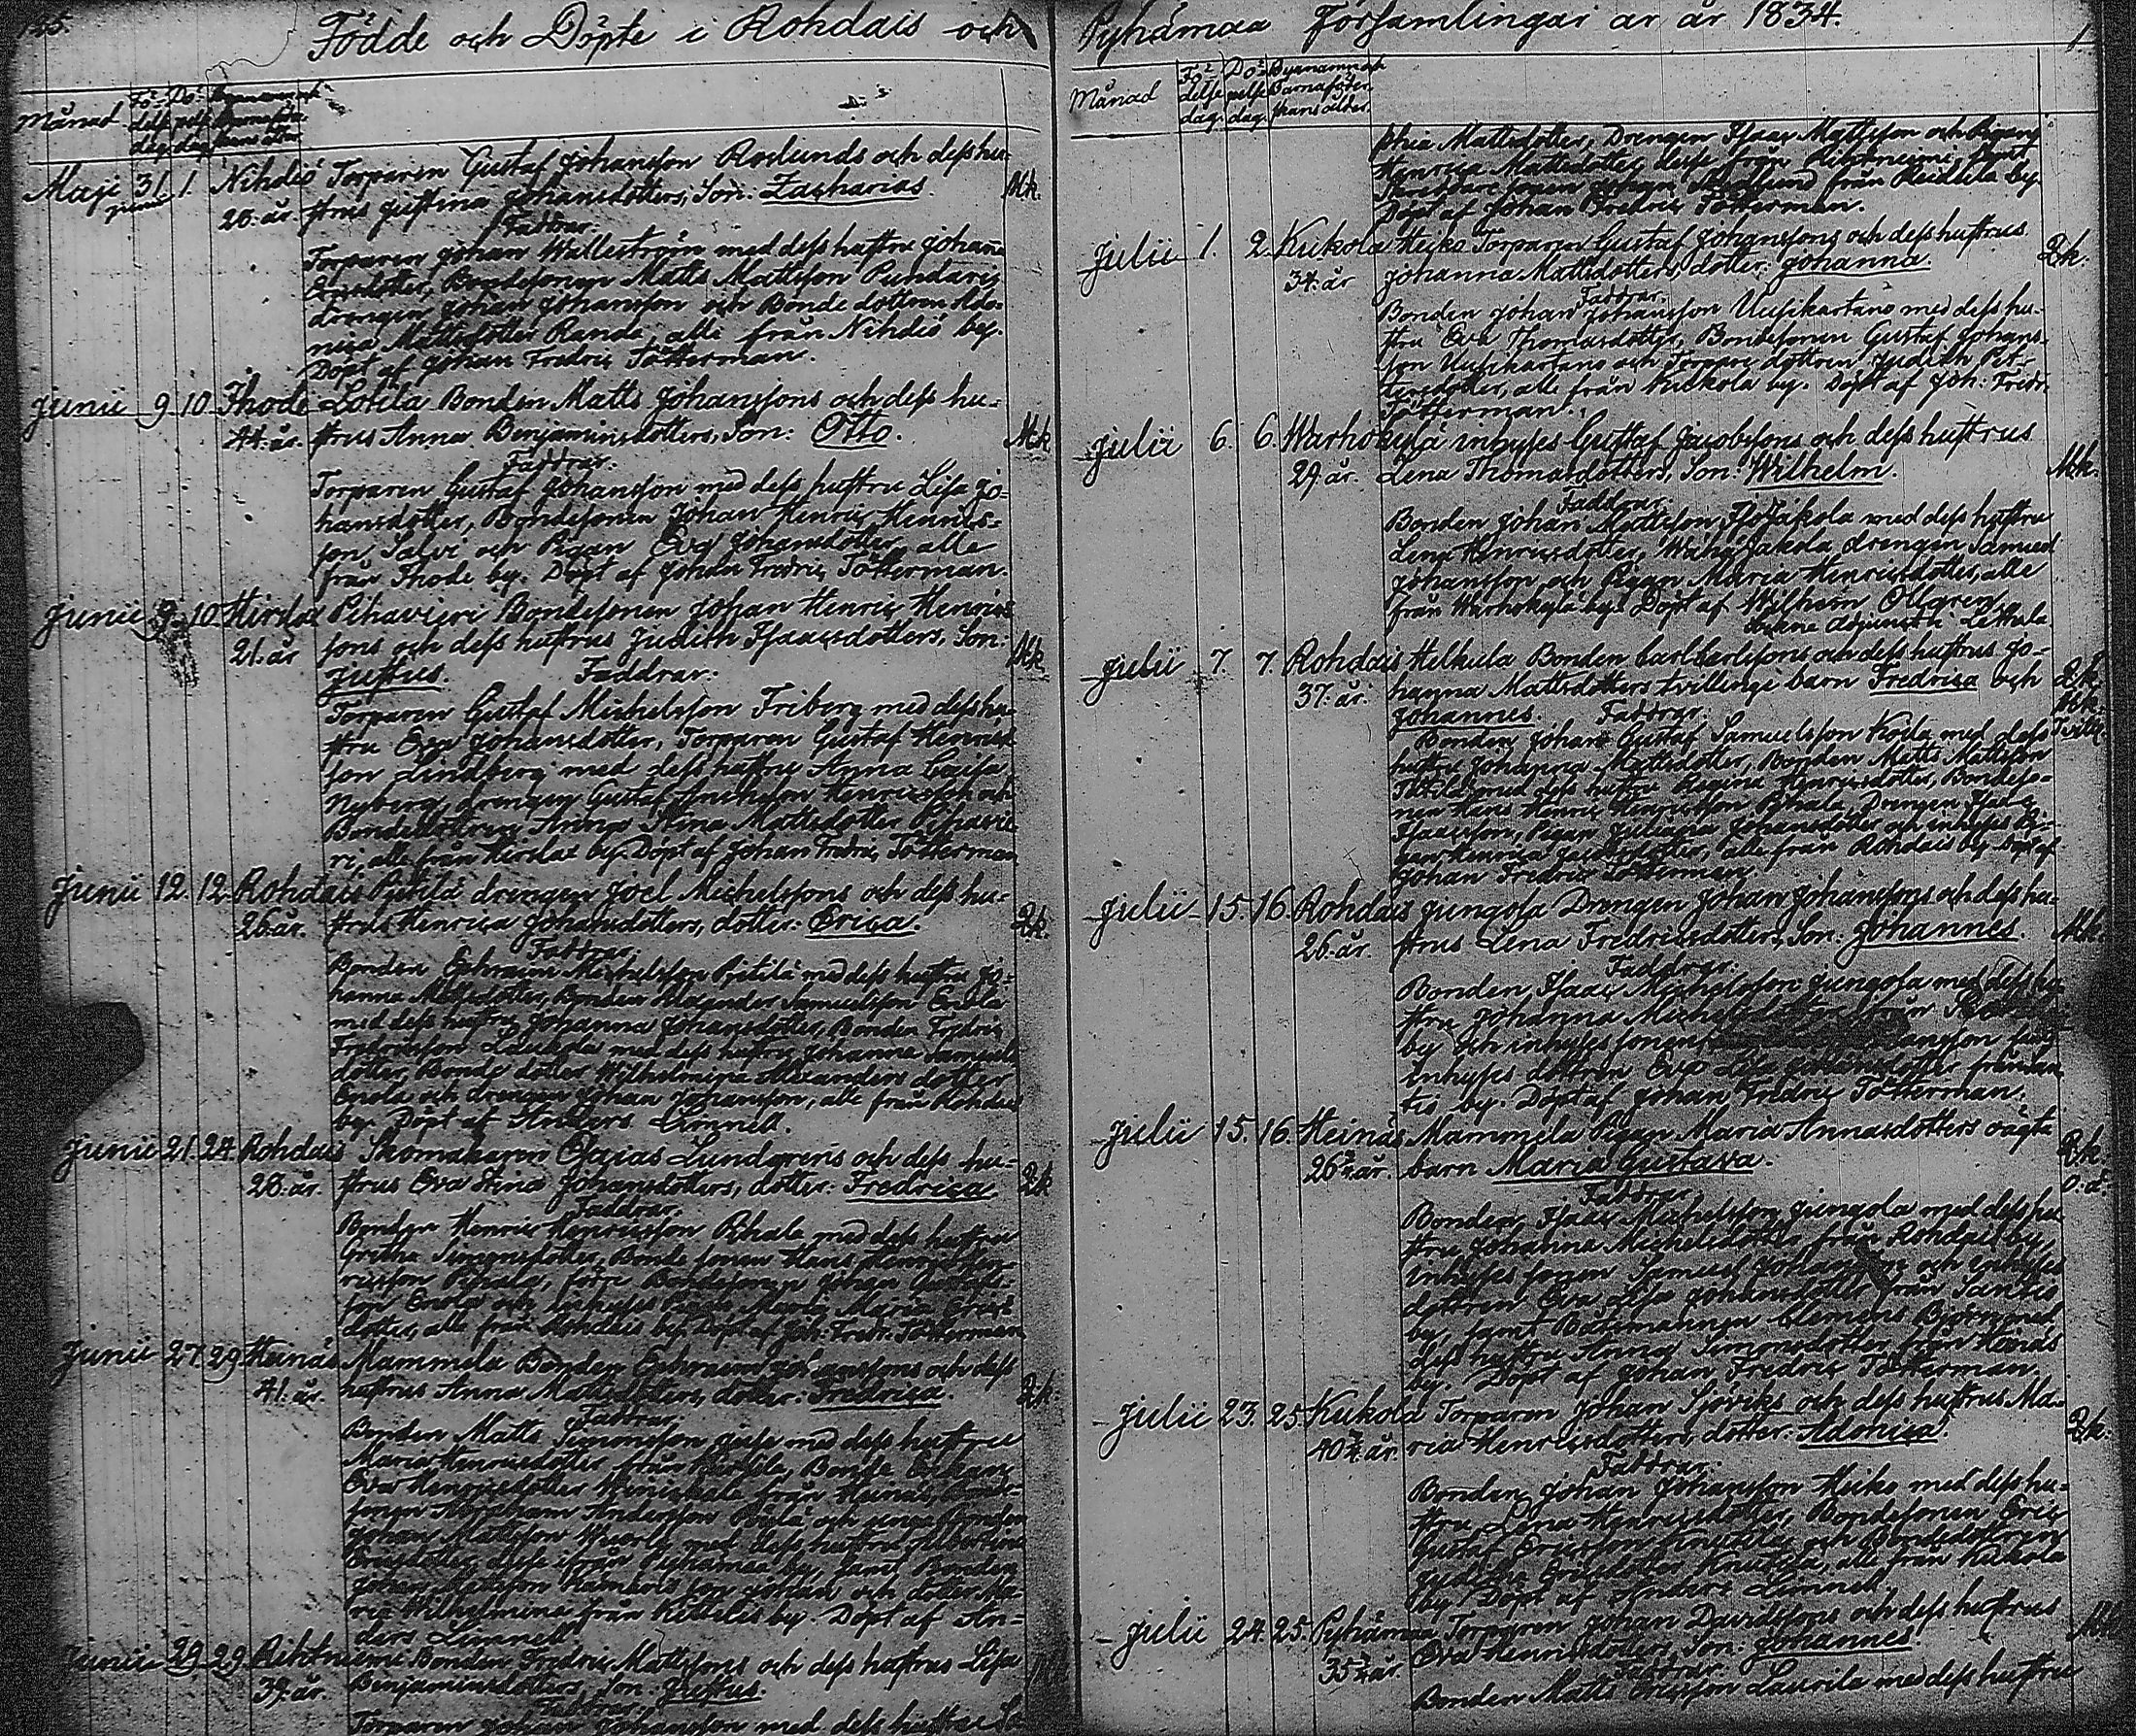 125.
Födde och Döpte i Rohdais och
Månad Fö- delse dag. Dö- pelse dag. Bynamn och
Maji 31. 1. Nihdiö Torparen Gustaf Johansson Roslunds och dess hu-
junii 28. år. strus Justina Johansdotters, Son: Zacharias. Mk.
Faddrar:
Torparen Johan Wallström med dess hustru Johanna
Ericsdotter, Bondesonen Matts Mattsson Pundars
drengen Johan Johansson och Bonde dottren Ado-
nica Mattsdotter Randa, alle från Nihdiö by.
Döpt af Johan Fredric Tötterman.
Junii 9. 10. Ihode Lotila Bonden Matts Johanssons och dess hu-
44. år. strus Anna Benjaminsdotters, Son: Otto. Mk.
Faddrar:
Torparen Gustaf Johansson med dess hustru Lisa Jo-
hansdotter, Bondesonen Johan Henric Henrics-
son Salvi och Pigan Eva Johansdotter, alle
från Ihode by. Döpt af Johan Fredric Tötterman.
Junii 9. 10. Hirslax Pihavieri Bondesonen Johan Henric Henrics-
21. år sons och dess hustrus Judith Isaacsdotters, Son: Mk.
Justus. Faddrar:
Torparen Gustaf Michelsson Friberg med dess hu-
stru Eva Johansdotter, Torparen Gustaf Henrics-
son Lindberg med dess hustru Anna Caisa
Nyberg, drengen Gustaf
Bondedottren Stina Mattsdotter Pihavie-
ri, alle från Hirslax by. Döpt af Johan Fredric Tötterman
Junii 12. 12. Rohdais Pietilä drengen Joel Michelssons och dess hu-
26. år. strus Henrica Johansdotters, dotter: Erica. Qk.
Faddrar:
Bonden Ephraim Michelsson Pietilä med dess hustru Jo-
hanna Mattsdotter, Bonden Alexander Samuelsson Enola
med dess hustru Johanna Johansdotter, Bonden Fredric
Fredricsson med dess hustru Johanna Samuels-
dotter, Bonde dotter Wilhelmina Alexanders dotter
Enola och drengen Johan Johansson, alle från Rohdais
by. Döpt af Anders Limnell.
Junii 21. 24. Rohdais Skomakaren Esaias Lundgrens och dess hu-
28. år. strus Eva Stina Johansdotters, dotter: Fredrica. Qk
Faddrar.
Bonden Henric Henricsson Pihala med dess hustru
Gretha Simonsdotter, Bonde sonen Hans Henric Hen-
ricsson Pihala, Bondesonen Johan Gustafs-
son Enola och inhyses Pigan Maria Erics-
dotter, alle från Rohdais by. Döpt af Joh: Fredr. Tötterman
Junii 27. 29. Heinäs Mammela Bonden Ephraim Johanssons och dess
41. år. hustrus Anna Mattsdotters, dotter: Fredrica. Qk.
Faddrar.
Bonden Matts Simonsson med dess hustru
Maria Henricsdotter från Bonde Enkan
Eva Henricsdotter från Heinäs, Bonde-
sonen Abraham Andersson och unga Bonden
Johan Mattsson med dess hustru Albertina
Ericsdotter, desse ifrån Pyhämaa by, samt Bonden
Johan Mattsson son Johan och dotter Ma-
ria Wilhelmina från Ketteles by. Döpt af An-
ders Limnell
Junii 29. 29. Rihtniemi Bonden Fredric Mattssons och dess hustrus Lisa
39. år. Benjaminsdotters, Son: Justus. Mk
Faddrar:
Torparen Johan Johansson med dess hustru So-
Pyhämaa Församlingar år 1834.
Månad Fö- delse dag. Dö- pelse dag. Bynamn och Barnaföder- skans ålder.
phia Mattsdotter, Drengen Isaac Mattsson och Pigan
Henrica Mattsdotter, desse från Rihtniemi, samt
sonen Johan från Reidila by.
Döpt af Johan Fredric Tötterman.
Julii 1. 2. Kukola Heiko Torparen Gustaf Johanssons och dess hustrus
34. år Johanna Mattsdotters, dotter: Johanna. Qk.
Faddrar.
Bonden Johan Johansson Uusikartano med dess hu-
stru Eva Thomasdotter, Bondesonen Gustaf Johans-
son Uusikartano och Torpare dottren Judith Pet-
tersdotter, alle från Kukola by. Döpt af Joh: Fredr.
Tötterman.
Julii 6. 6. Warhokylä inhyses Gustaf Jacobssons och dess hustrus
29. år. Lena Thomasdotters, Son: Wilhelm. Mk.
Faddrar.
Bonden Johan Mattsson Iso Jakola med dess hustru
Lena Henricsdotter, Wähä Jakola drengen Samuel
Johansson och Pigan Maria Henricsdotter, alle
från Warhokylä by. Döpt af Wilhelm Ollgren
Sockne Adjunct i Letthala
Julii 7. 7. Rohdais Helkula Bonden Carl Carlssons och dess hustrus Jo-
37. år. hanna Mattsdotters tvillinge barn Fredrica och Qk.
Johannes. Faddrar. Mk.
Bonden Johan Gustaf Samuelsson Köilä med dess Tvill.
hustru Johanna Mattsdotter, Bonden Matts Mattsson
med dess hustru Regina Henricsdotter, Bondeso-
nen Hans Henric Henricsson Pihala, Drengen Isaac
Isaacsson, Pigan Juliana Johansdotter och inhyses Pi-
gan Henrica alle från Rohdais by. Döpt af
Johan Fredric Tötterman.
Julii 15. 16. Rohdais Jungola Drengen Johan Johanssons och dess hu-
26. år. strus Lena Fredricsdotters, Son: Johannes. Mk.
Faddrar:
Bonden Isaac Michelsson Jungola med dess hu-
stru Johanna Michelsdotter från
by och inhyses sonen
inhyses dottren Eva Lisa Johansdotter från San-
tio by. Döpt af Johan Fredric Tötterman.
Julii 15. 16. Heinäs Mammela Pigan Maria Annasdotters oägta Qk.
26 år. barn Maria Gustava. o.ä.
Faddrar.
Bonden Isaac Michelsson Jungola med dess hu-
stru Johanna Michelsdotter från Rohdais by,
Inhyses sonen Samuel Johansson och inhyses
dottren Eva Lisa Johansdotter från Santio
by, samt Båtsmannen Clemens Björn med
dess hustru Anna Simonsdotter från Heinäs
by. Döpt af Johan Fredric Tötterman.
Julii 23. 25. Kukola Torparen Johan Sjöviks och dess hustrus Ma-
40 år. ria Henricsdotters, dotter: Adonica. Qk.
Faddrar:
Bonden Johan Johansson Heiko med dess hu-
stru Lena Henricsdotter, Bondesonen Eric
Gustaf Ericsson och Bondedottren
Ericsdotter Knuutila, alle från Kukola
by. Döpt af Anders Limnell.
Julii 24. 25. Pyhämaa Torparen Johan Davidssons och dess hustrus
35 år Eva Henricsdotters, Son: Johannes. Mk
Faddrar:
Bonden Matts Ericsson Laurila med dess hustru